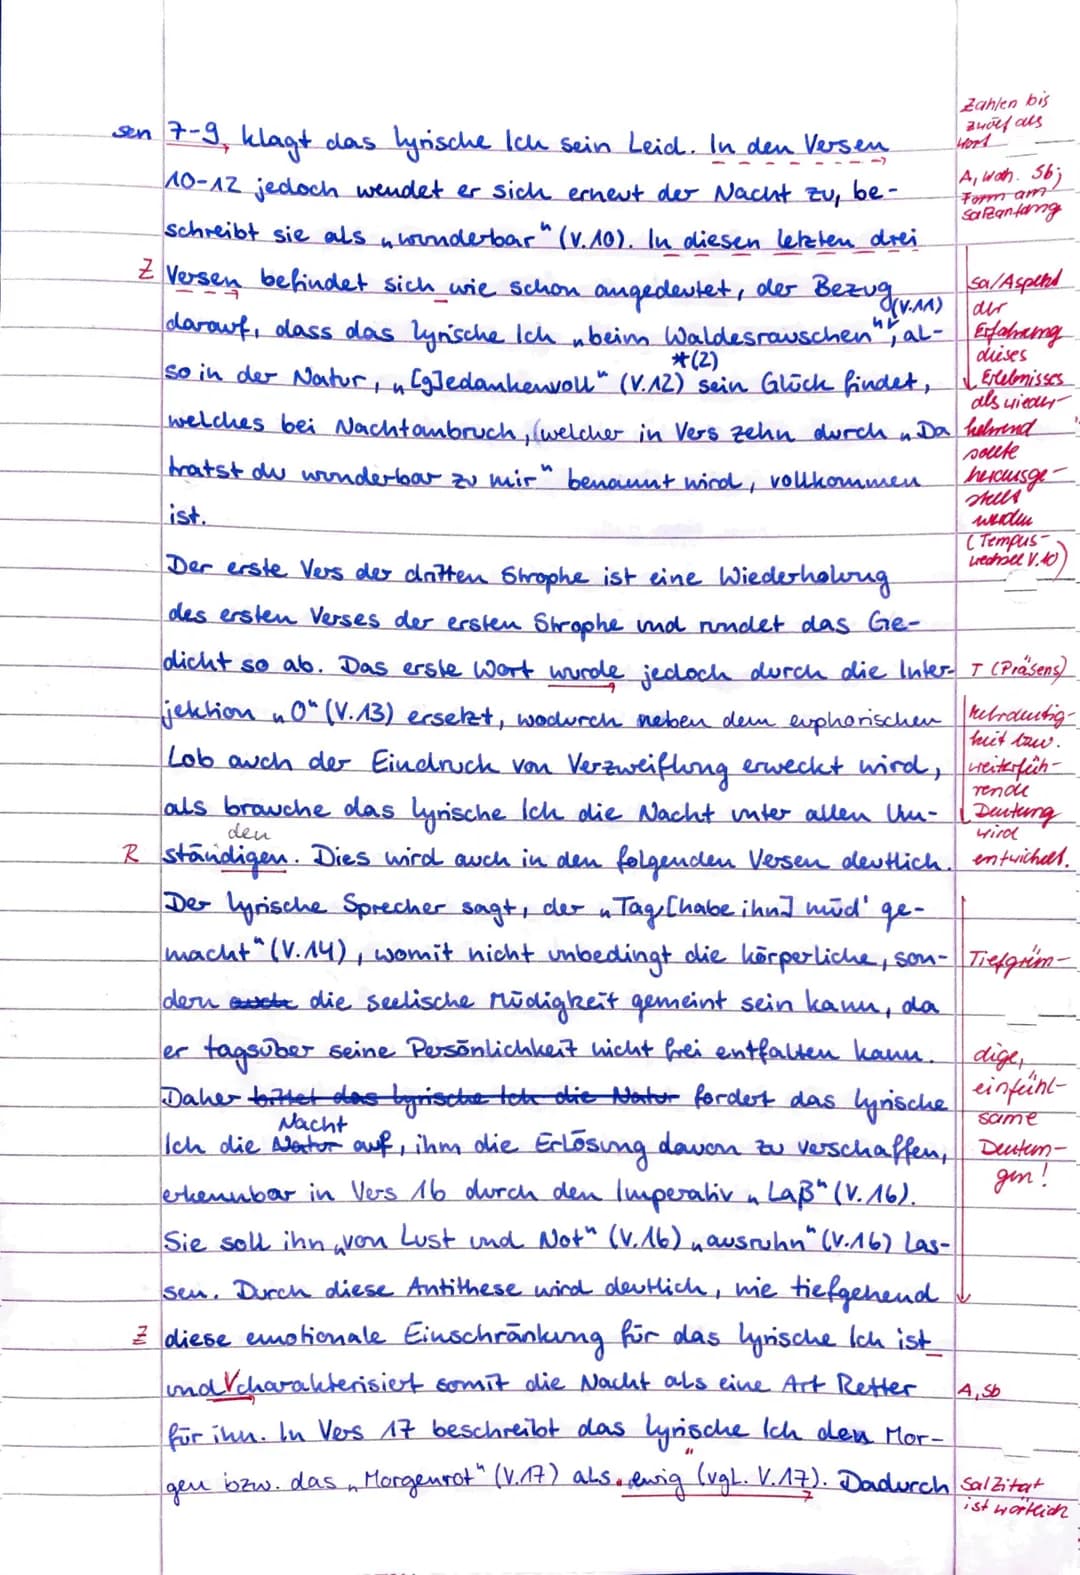 Zahlen bis
zwölf als
Wort
sen 7-9, klagt das lyrische Ich sein Leid. In den Versen
10-12 jedoch wendet er sich erneut der Nacht zu, be-
A, Wdh. Sb;
Form am
Satzanfang
schreibt sie als „wunderbar" (V.10). In diesen letzten drei
Z Versen befindet sich wie schon angedeutet, der Bezug
Sa/Aspekt
der
(V.11)
darauf, dass das lyrische Ich „beim Waldesrauschen", al-
Erfahrung
dieses
*(2)
so in der Natur, „[g]edankenvoll" (V.12) sein Glück findet,
Erlebnisses
als wieder-
welches bei Nachtanbruch, (welcher in Vers zehn durch „Da
kehrend
sollte
tratst du wunderbar zu mir" benannt wird, vollkommen
herausge-
stellt
ist.
werden
(Tempus-
wechsel V.10)
Der erste Vers der dritten Strophe ist eine Wiederholung
des ersten Verses der ersten Strophe und rundet das Ge-
dicht so ab. Das erste Wort wurde jedoch durch die Inter-
T (Präsens)
jektion „O" (V.13) ersetzt, wodurch neben dem euphorischen
Mehrdeutig-
keit bzw.
Lob auch der Eindruck von Verzweiflung erweckt wird,
weiterfüh-
rende
als brauche das lyrische Ich die Nacht unter allen Um-
Deutung
wird
den
R ständigen. Dies wird auch in den folgenden Versen deutlich.
entwickelt.
Der lyrische Sprecher sagt, der „Tag [habe ihn] müd' ge-
macht" (V.14), womit nicht unbedingt die körperliche, son-
Tiefgrün-
dern auch die seelische Müdigkeit gemeint sein kann, da
er tagsüber seine Persönlichkeit nicht frei entfalten kann.
dige,
einfühl-
Daher bittet das lyrische Ich die Natur fordert das lyrische
same
Nacht
Ich die Natur auf, ihm die Erlösung davon zu verschaffen,
Deutun-
gen!
erkennbar in Vers 16 durch den Imperativ „Laß" (V.16).
Sie soll ihn „von Lust und Not" (V.16) „ausruhn" (V.16) las-
sen. Durch diese Antithese wird deutlich, wie tiefgehend
Z diese emotionale Einschränkung für das lyrische Ich ist
und charakterisiert somit die Nacht als eine Art Retter
A, Sb
für ihn. In Vers 17 beschreibt das lyrische Ich den Mor-
gen bzw. das „Morgenrot" (V.17) als „ewig" (vgl. V.17). Dadurch
Sa/Zitat
ist wörtlich